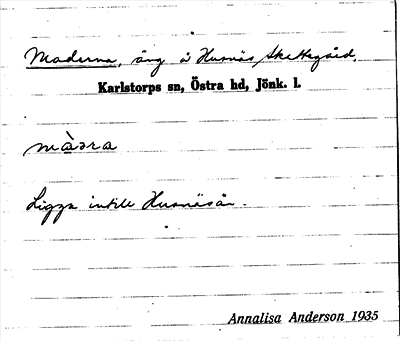 Maderna, äng å Husnäs Skattegård.
Karlstorps sn, Östra hd, Jönk. l.
màəra
Ligga intill Husnäsån.
Annalisa Anderson 1935